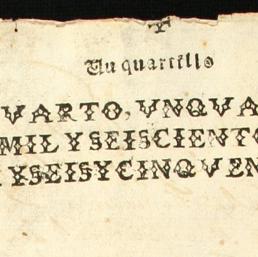 Un quartillo
VARTO, VNQVA
MIL Y SEISCIENTO
Y SEIS Y CINQVEN